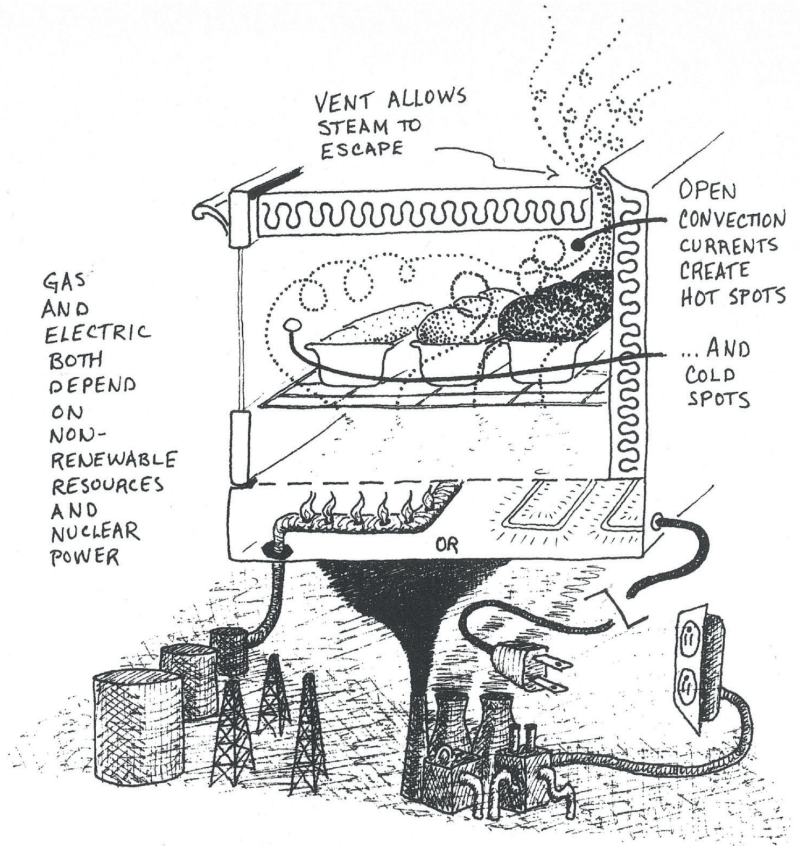 VENT ALLOWS
STEAM TO
ESCAPE
OPEN
CONVECTION
CURRENTS
CREATE
HOT SPOTS
...AND
COLD
SPOTS
GAS
AND
ELECTRIC
BOTH
DEPEND
ON
NON-
RENEWABLE
RESOURCES
AND
NUCLEAR
POWER
OR